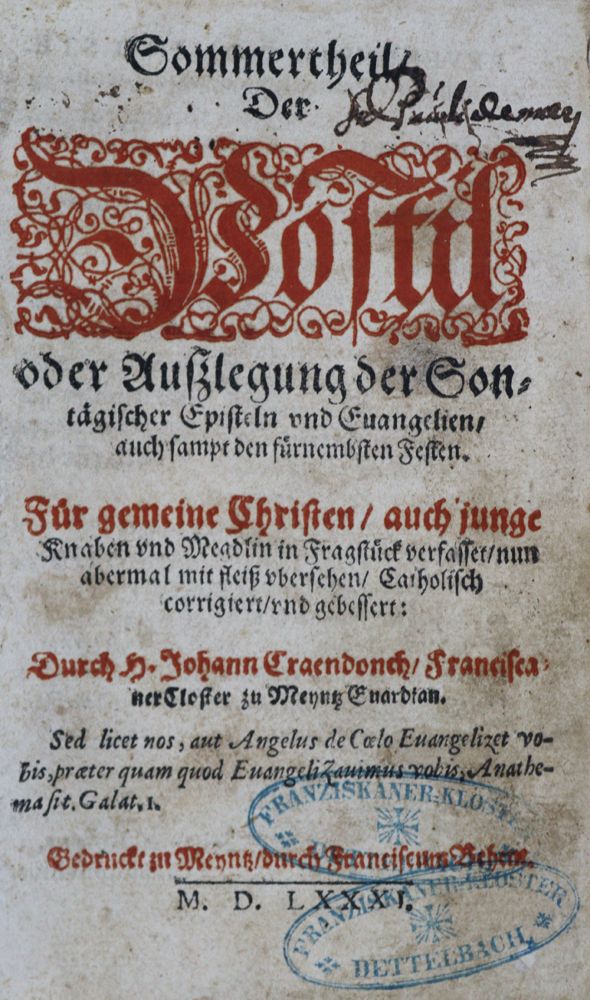 Sommertheil/
Der
Postil
oder Außlegung der Son-
tägischer Episteln vnd Euangelien/
auch sampt den fürnembsten Festen.
Für gemeine Christen / auch junge
Knaben vnd Meadlin in Fragstück verfasset/nun
abermal mit fleiß vbersehen/ Catholisch
corrigiert/vnd gebessert:
Durch H. Johann Craendonch/ Francisca-
nerCloster zu Meyntz Guardian.
Sed licet nos, aut Angelus de Cœlo Evangelizet vo-
bis, præter quam quod Evangelizauimus vobis, Anathe-
ma sit. Galat. 1.
Gedruckt zu Meyntz/durch Franciscum Behem.
M. D. LXXXI.
FRANZISKANER-KLOSTER
FRANZISKANER-KLOSTER
DETTELBACH